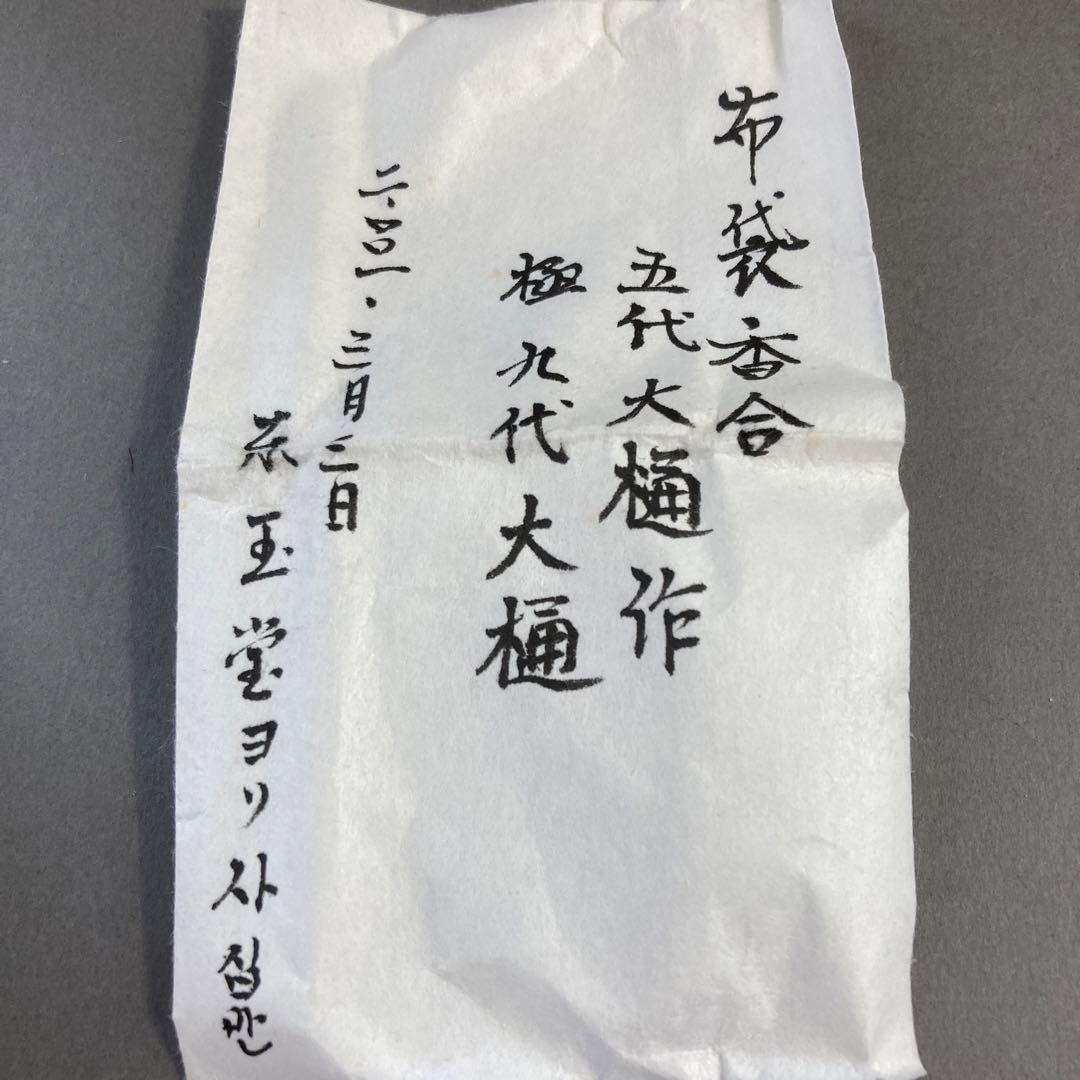 布袋香合
五代大樋作
極 九代大樋
二〇〇一・三月二日
玉堂ヨリ